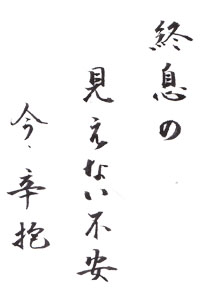 終息の
見えない不安
今、辛抱